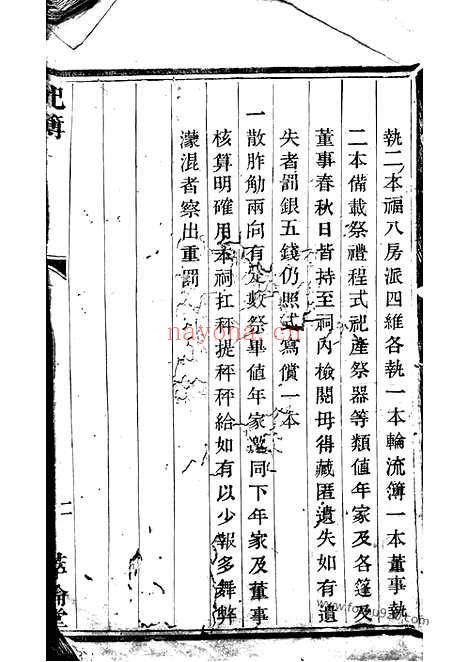 執二本福八房派四維各執一本輪流簿一本董事執
二本備載祭禮程式祀產祭器等類值年家及各篷及
董事春秋日皆持至祠內檢閱毋得藏匿遺失如有遺
失者罰銀五錢仍照式寫償一本
一散胙觔兩向有定數祭畢值年家邀同下年家及董事
核算明確用本祠扛秤提秤秤給如有以少報多舞弊
蒙混者察出重罰
祀簿
二
萃倫堂
nayona.cn